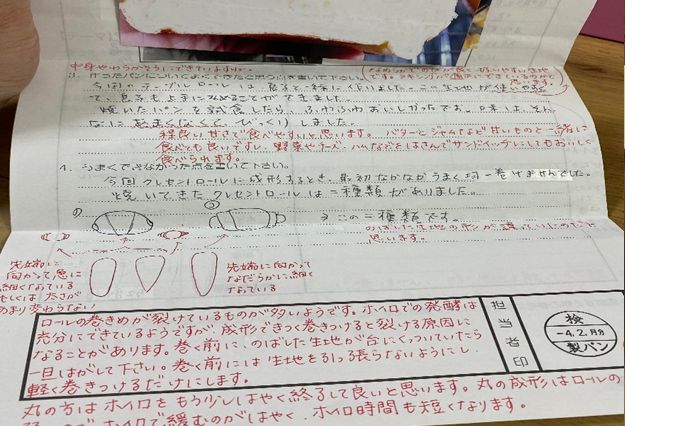 中身やわらかそうにできていますね。
3. 作ったパンについてよくできたと思う点を書いて下さい。
今回のテーブルロールは 息子と一緒に作りました。この生地が使いやすく
て、息子も上手に丸めることができました。
焼いたパンを試食したら、ふわふわおいしかったです。味は、そん
なに甘くなくて、びっくりしました。
程良い甘さで食べやすいと思います。バターとジャムなど甘いものと一緒に
食べても良いですし、野菜やチーズ、ハムなどをはさんでサンドイッチにしてもおいしく
食べられます。
4. うまくできなかった点を書いて下さい。
今回クレセントロールに成形するとき、最初なかなかうまく均一巻けませんでした。
焼いてきたクレセントロールは二種類がありました。
この二種類です。
のばした生地の形が違っていたのだと
思います。
先端に
向かって急に
細くなっている
もしくは 太さが
あまり変わらない
先端に向かって
なだらかに細く
なっている
ロールの巻きめが裂けているものが多いようです。ホイロでの発酵は
充分にできているようですが、成形できつく巻きつけると裂ける原因に
なることがあります。巻く前に、のばした生地が台にくっついていたら
一旦はがして下さい。巻く前には 生地を引っ張らないようにし、
軽く巻きつけるだけにします。
担当者印
検
-4.2.月分
製パン
丸の方はホイロをもう少しはやく終了して良いと思います。丸の成形はロールの
ホイロで緩むのがはやく、ホイロ時間も短くなります。